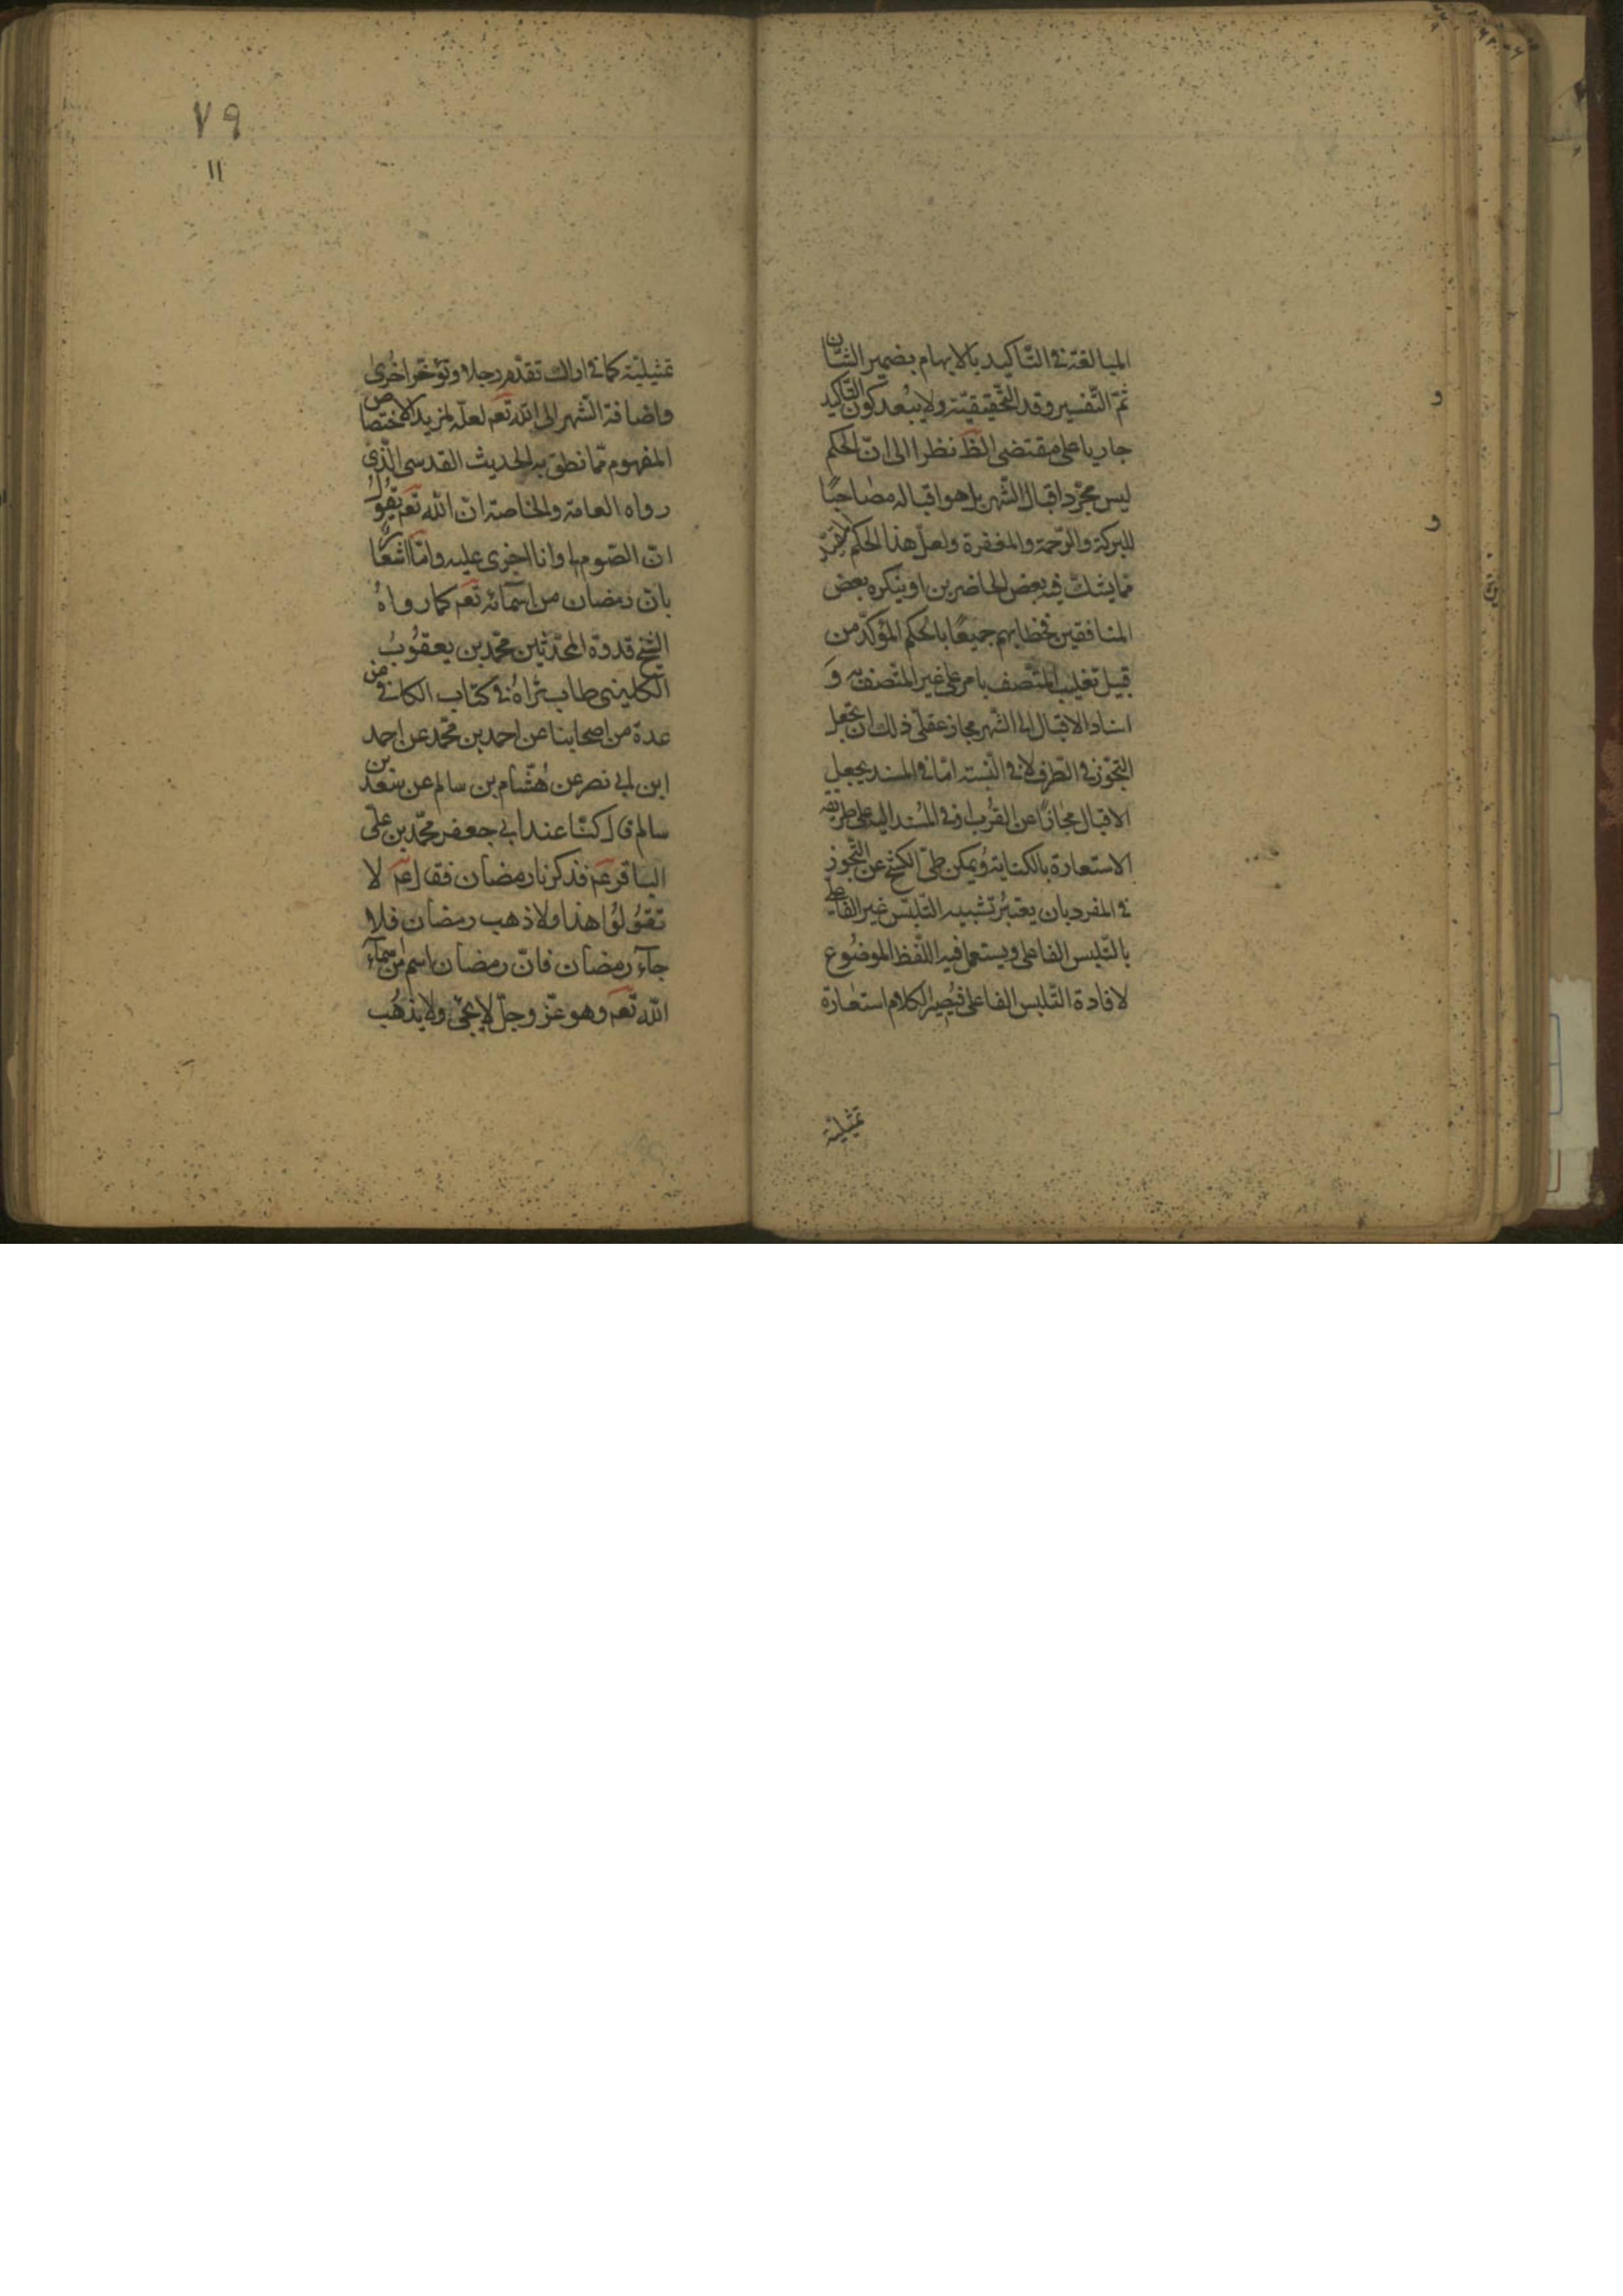 المبالغة في التاكيد بالابهام بضمير الشان
ثم التفسير وقد التحقيقية ولا يبعد كون التاكيد
جاريا على مقتضى الظ نظرا الى ان الحكم
ليس مجرد اقبال الشهر بل هو اقباله مصاحبًا
للبركة والرحمة والمغفرة ولعل هذا الحكم
مما يشك فيه بعض الحاضرين او ينكره بعض
المنافقين فخطابهم جميعًا بالحكم المؤكد من
قبيل تغليب المتصف بامر على غير المتصف به وَ
اسناد الاقبال الى الشهر مجاز عقلي ذلك ان تجعل
التجوز في الطرف لا في النسبة اما في المسند بجعل
الاقبال مجازًا عن القُرب او في المُسند اليه على طريقة
الاستعارة بالكناية ويمكن طي الكشح عن التجوز
في المفرد بان يعتبُر تشبيه التلبس غير الفاعلي
بالتلبس الفاعلي ويستعمل فيه اللفظ الموضُوع
لافادة التلبس الفاعلي فيُصير الكلام استعارة
تمثيلية
٧٩
١١
تمثيلية كما في اراك تقدم رجلا وتؤخر اخرُى
واضافة الشهر الى الله تعم لعله لمزيد الاختصاص
المفهوم مما نطق به الحديث القدسي الذى
رواه العامة والخاصة ان الله تعم يقُولُ
ان الصوم لي وانا اجزى عليه واما اشعارًا
بان رمضان من اسمائه تعم كما رواهُ
الشيخ قدوة المحدثين محمد بن يعقُوبُ
الكليني طاب ثراهُ في كتاب الكافي عن
عدة من اصحابنا عن احمد بن محمد عن احمد
ابن ابي نصر عن هُشام بن سالم عن سعد بن
سالم قال كنّا عند ابي جعفر محمّد بن على
الباقر عم فذكرنا رمضان فقال عم لا
تقوُلوُا هذا ولا ذهب رمضان فلا
جآء رمضان فانّ رمضان اسم من اسمآء
الله تعم وهو عزّ وجلّ لا يجئ ولا يذهُب